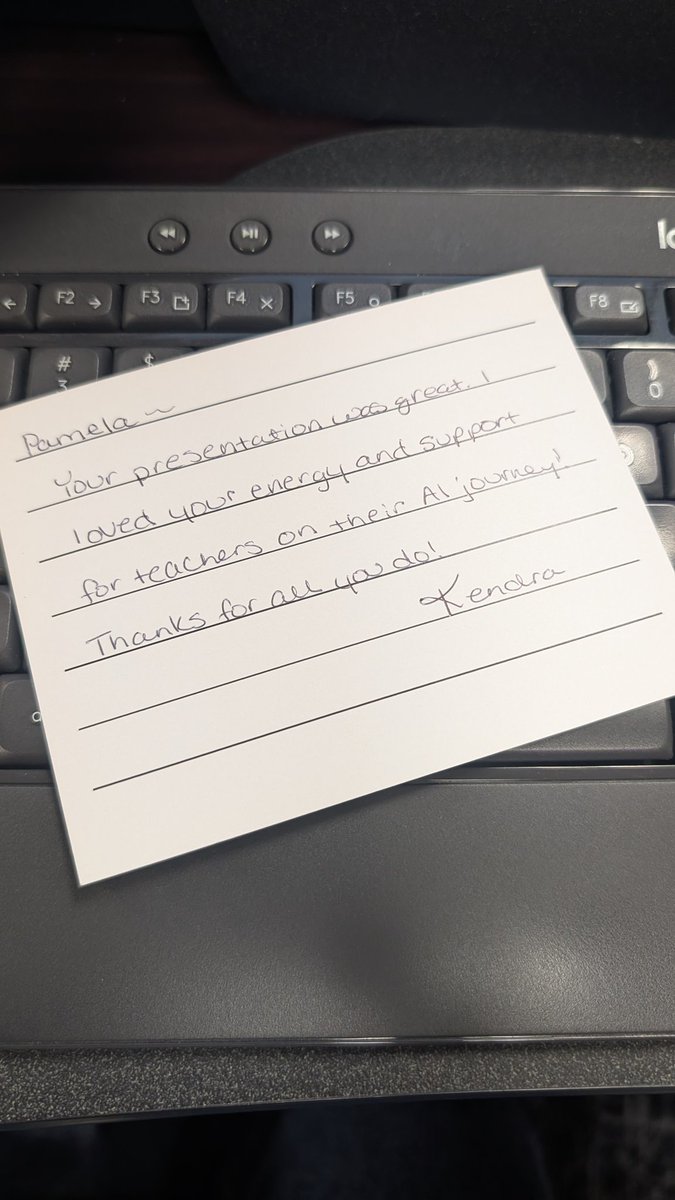 lo
F2
F3
F4
F5
F8
#
3
$
)
0
Pamela ~
Your presentation was great. I
loved your energy and support
for teachers on their AI journey!
Thanks for all you do!
Kendra